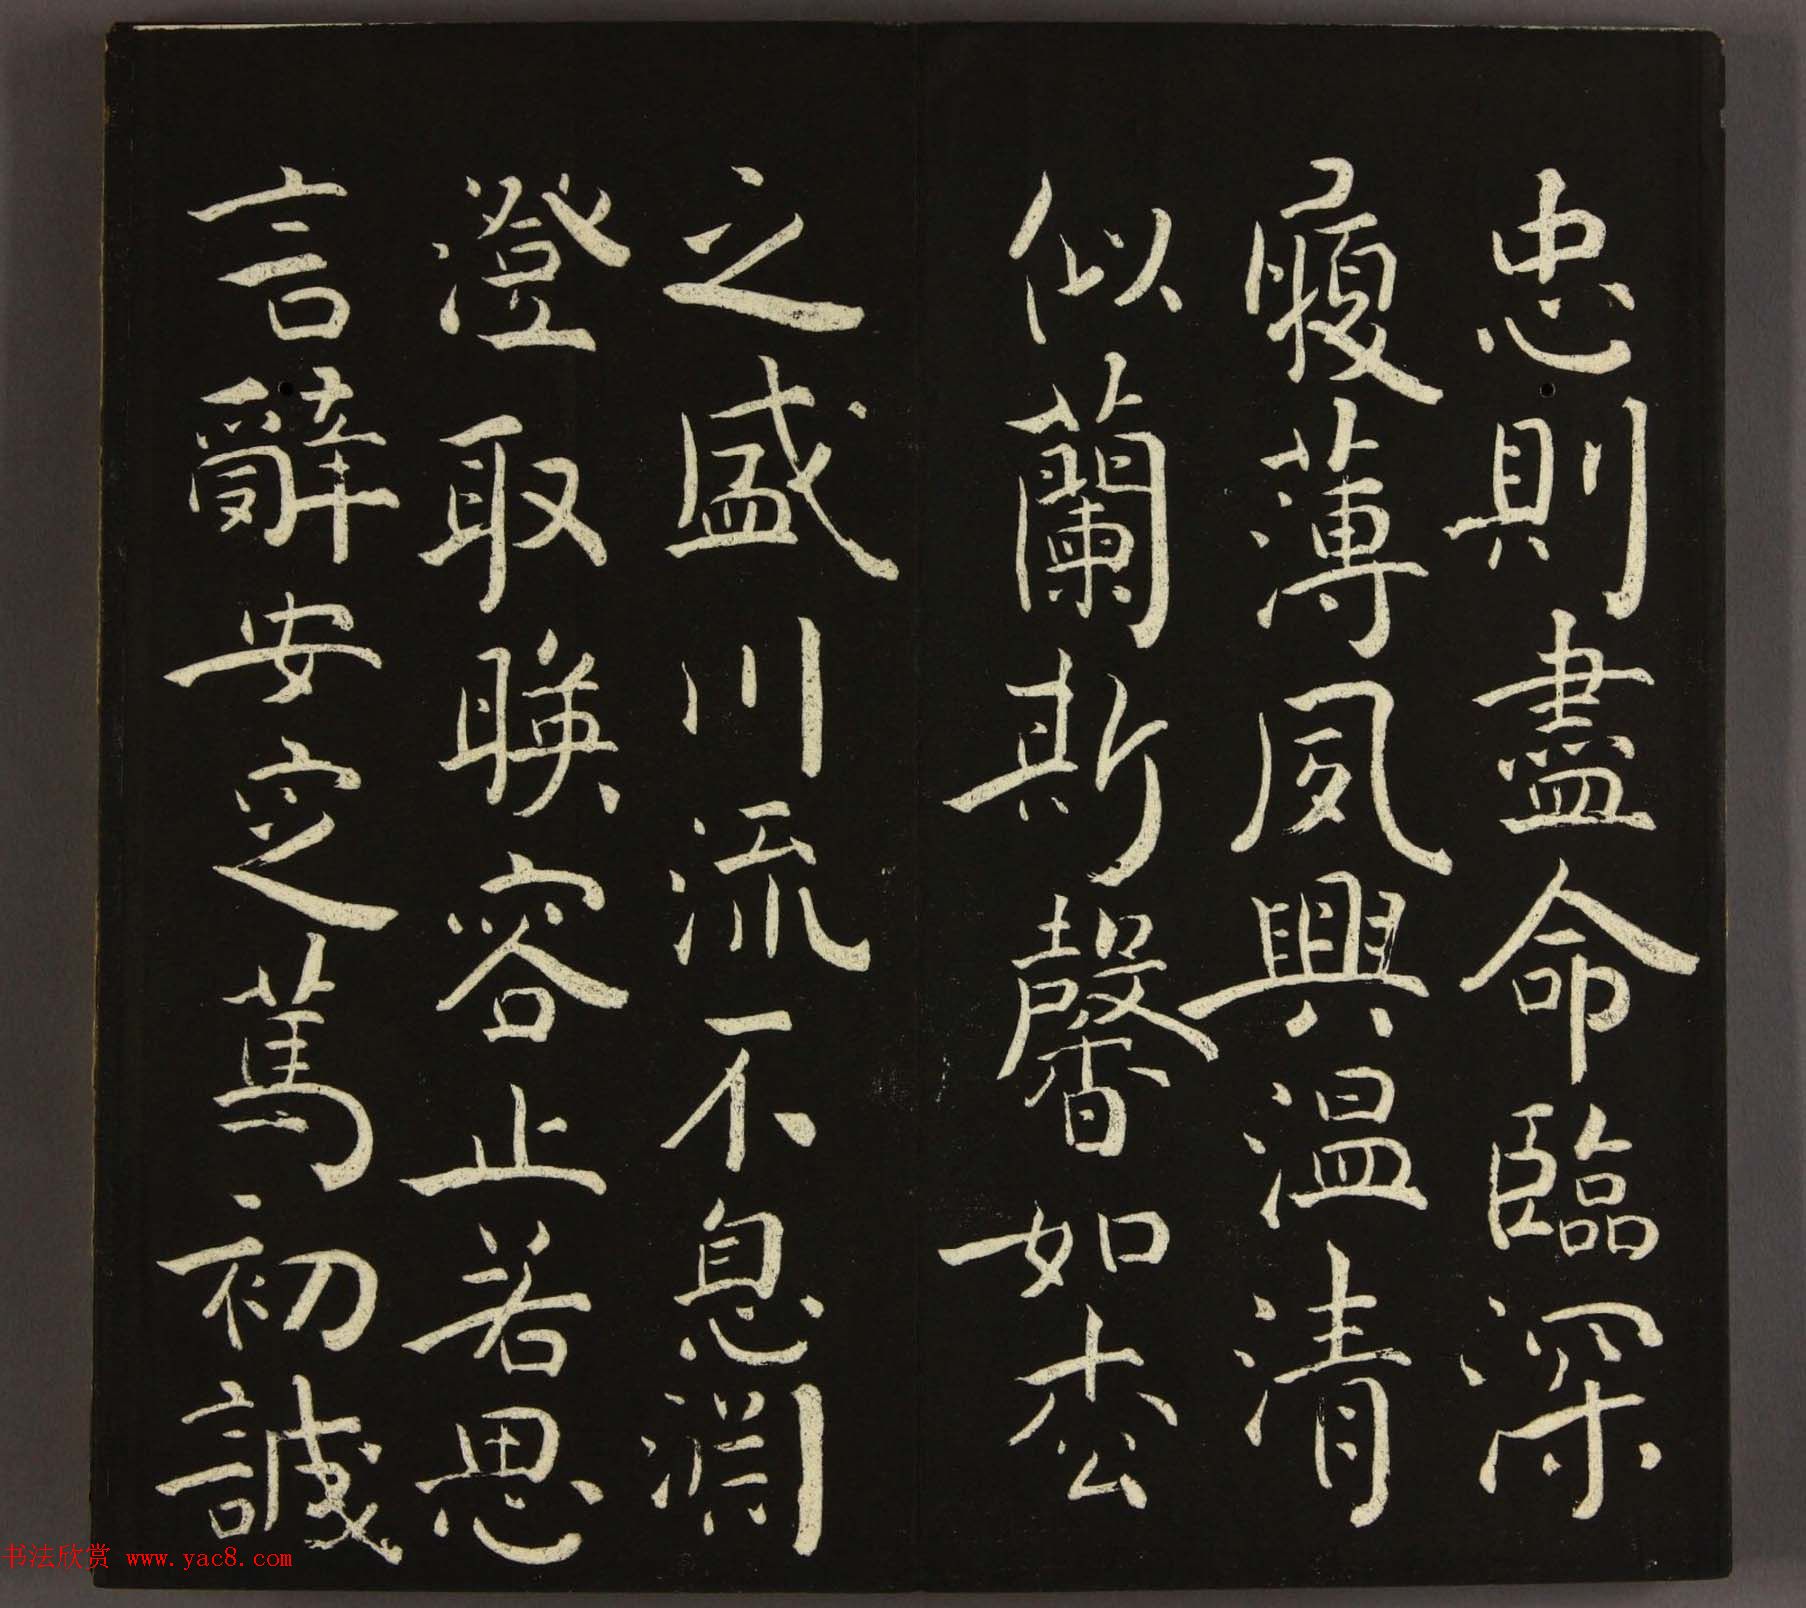 忠則盡命臨深
履薄夙興温清
似蘭斯馨如松
之盛川流不息淵
澄取暎容止若思
言辭安定篤初誠
书法欣赏 www.yac8.com